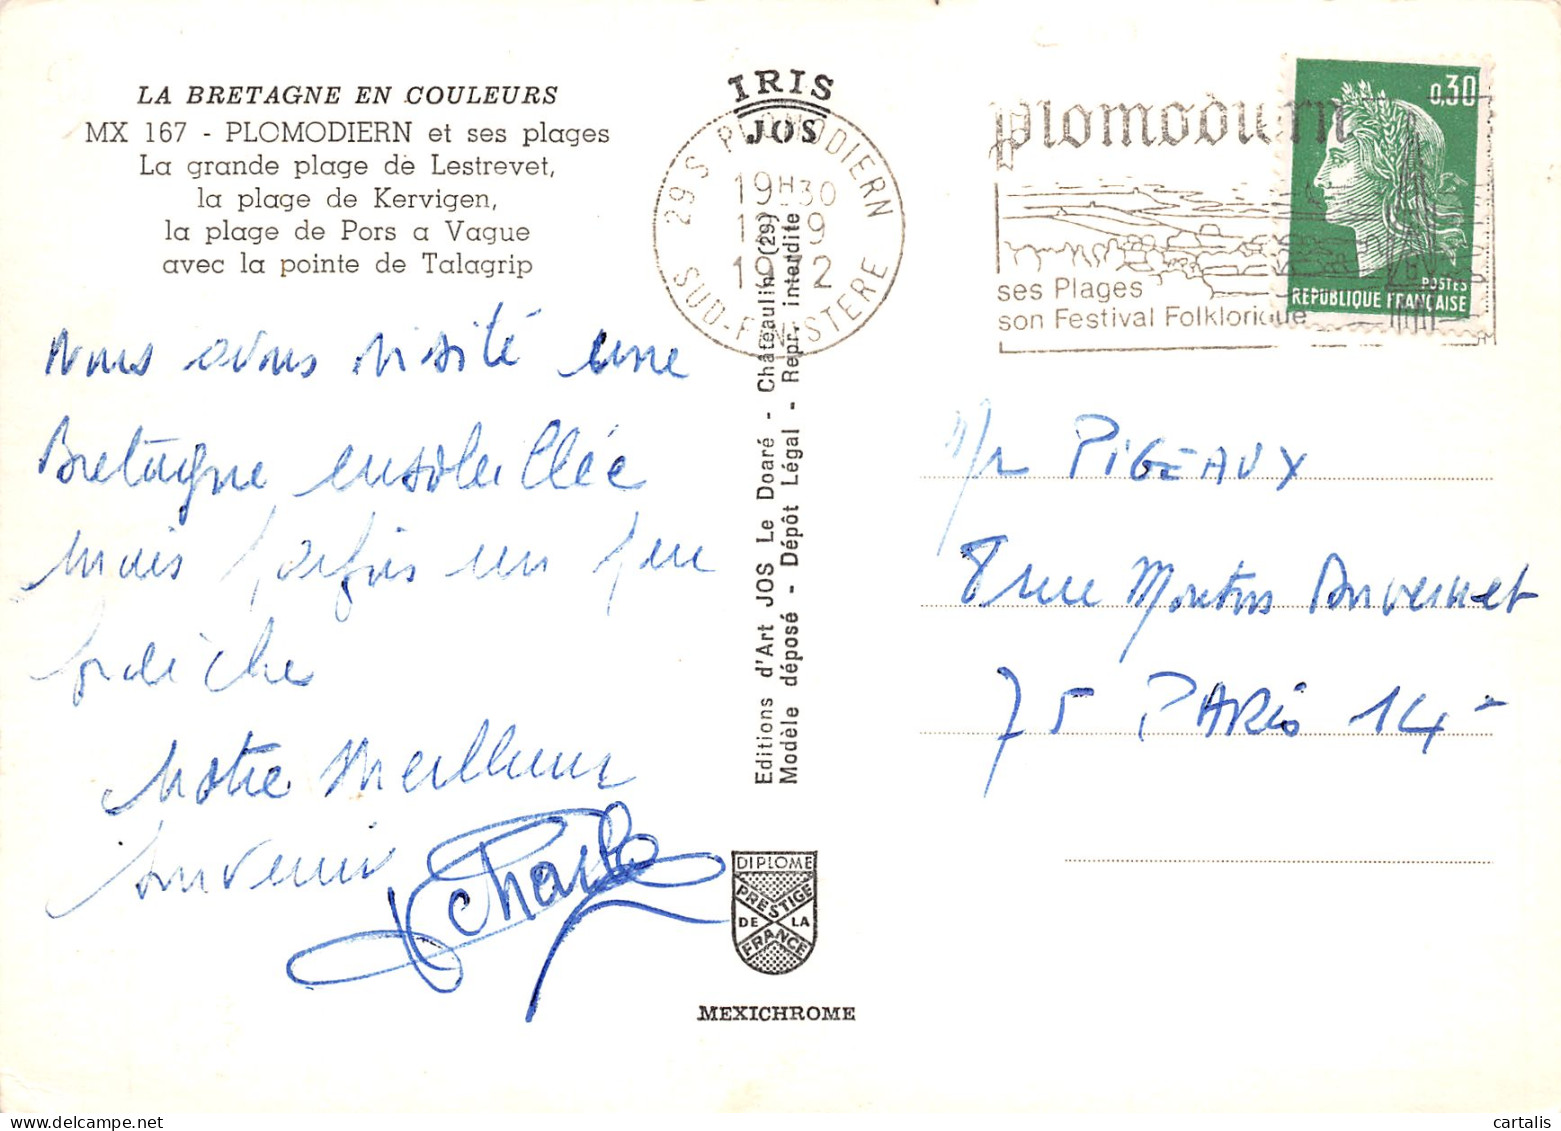 LA BRETAGNE EN COULEURS
MX 167 - PLOMODIERN et ses plages
La grande plage de Lestrevet,
la plage de Kervigen,
la plage de Pors a Vague
avec la pointe de Talagrip
Nous avons visité une
Bretagne ensoleillée
mais parfois un peu
fraîche
Notre Meilleur
Souvenir
Charles
IRIS
JOS
29 S PLOMODIERN
19H30
SUD-FINISTERE
Editions d'Art JOS Le Doaré - Châteaulin (29)
Modèle déposé - Dépôt Légal - Repr. interdite
DIPLOME
PRESTIGE
DE LA
FRANCE
MEXICHROME
plomodiern
ses Plages
son Festival Folklorique
0,30
POSTES
REPUBLIQUE FRANÇAISE
Mr PIGEAUX
8 rue Mouton Duvernet
75 PARIS 14
cartalis